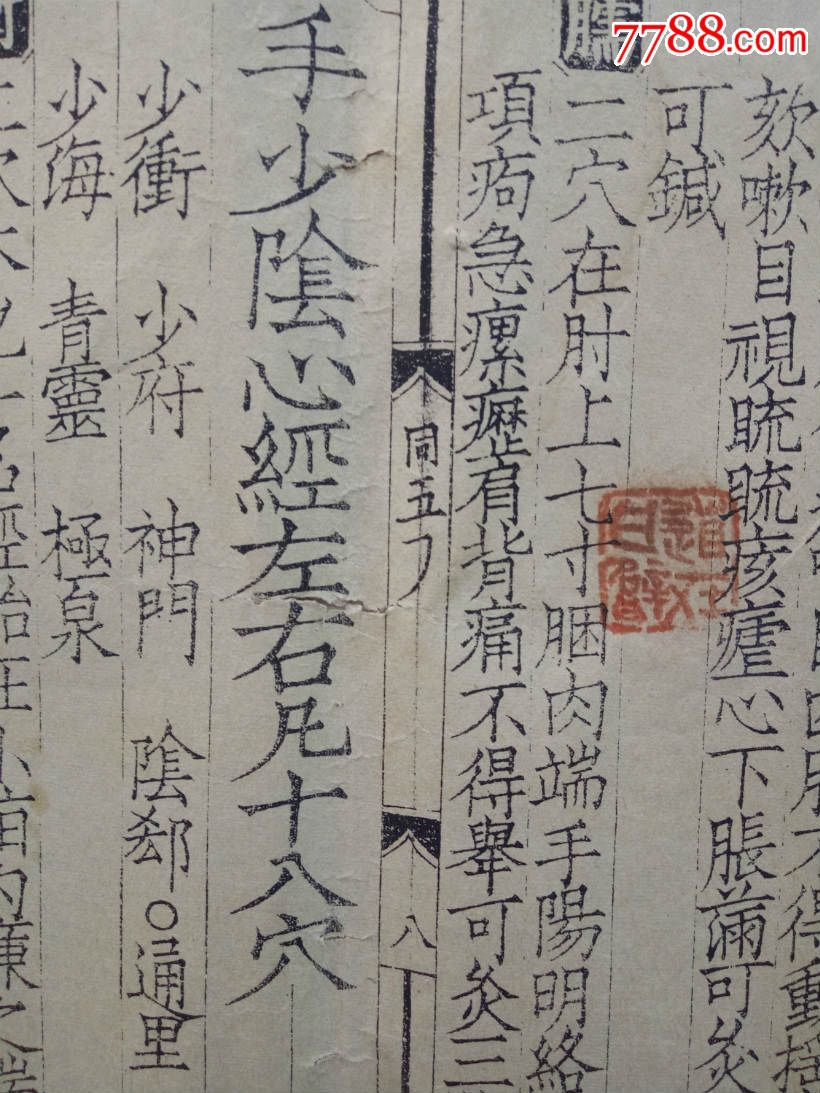 7788.com
得動搖
欬嗽目視䀮䀮痎瘧心下脹滿可灸
可鍼
臑
二穴在肘上七寸䐃肉端手陽明絡
項痀急瘰癧肩背痛不得舉可灸三
同五
八
手少陰心經左右凡十八穴
少衝 少府 神門 陰郄○通里
少海 青靈 極泉